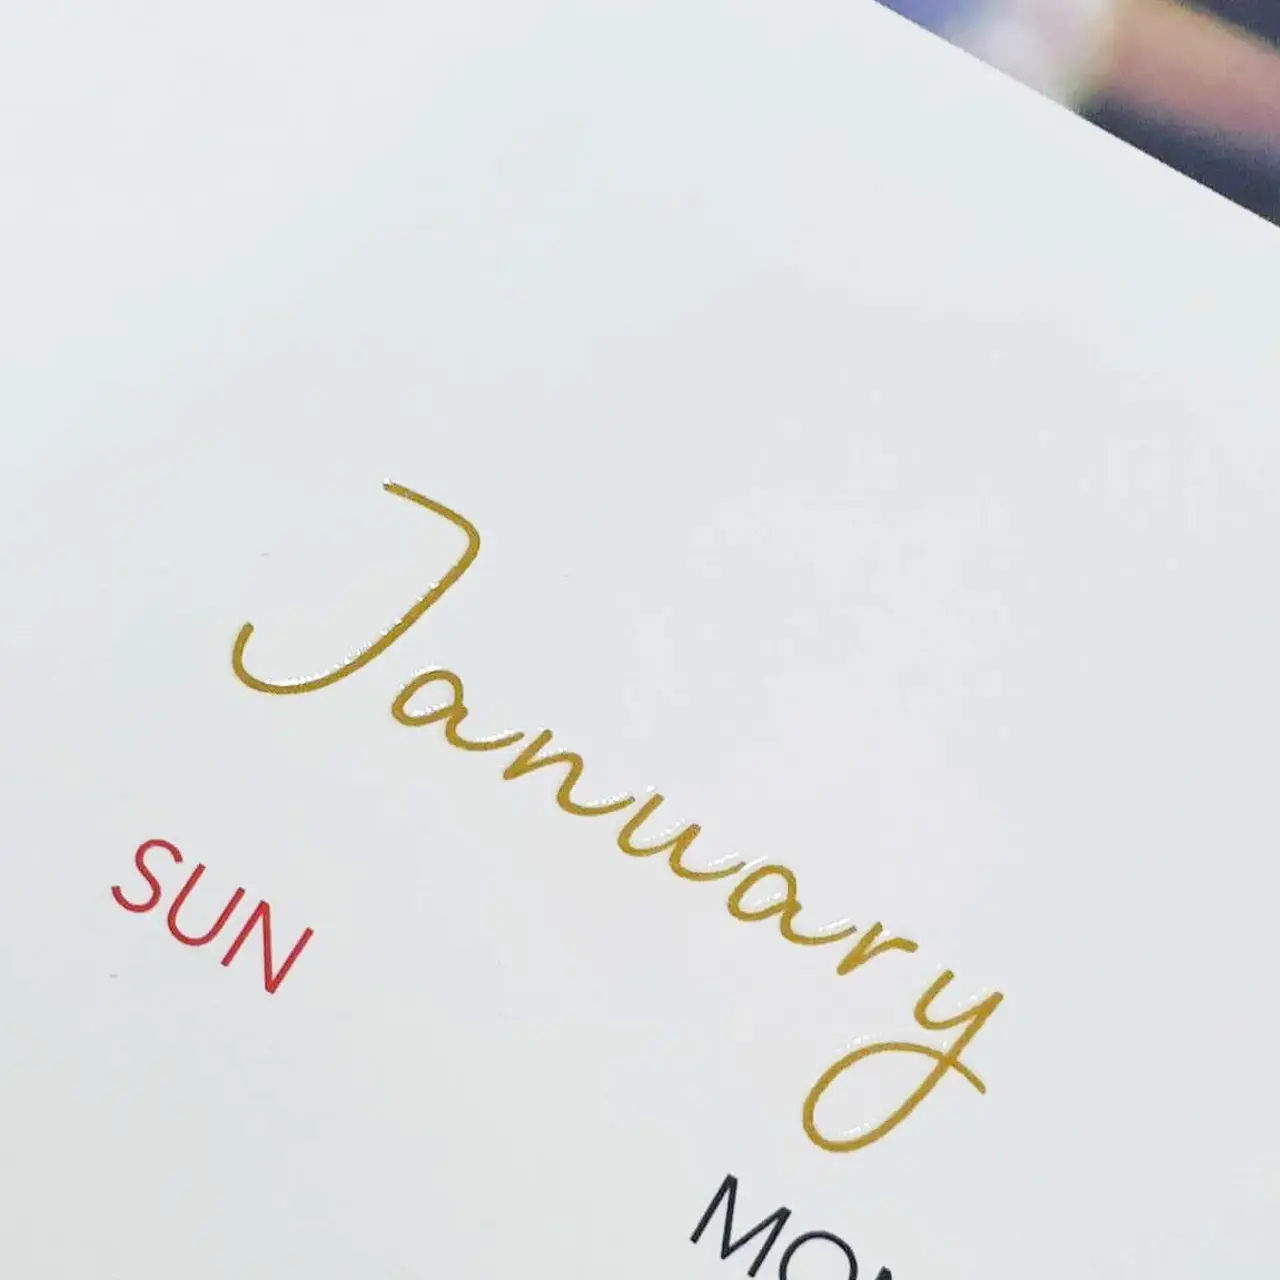 January
SUN
MON